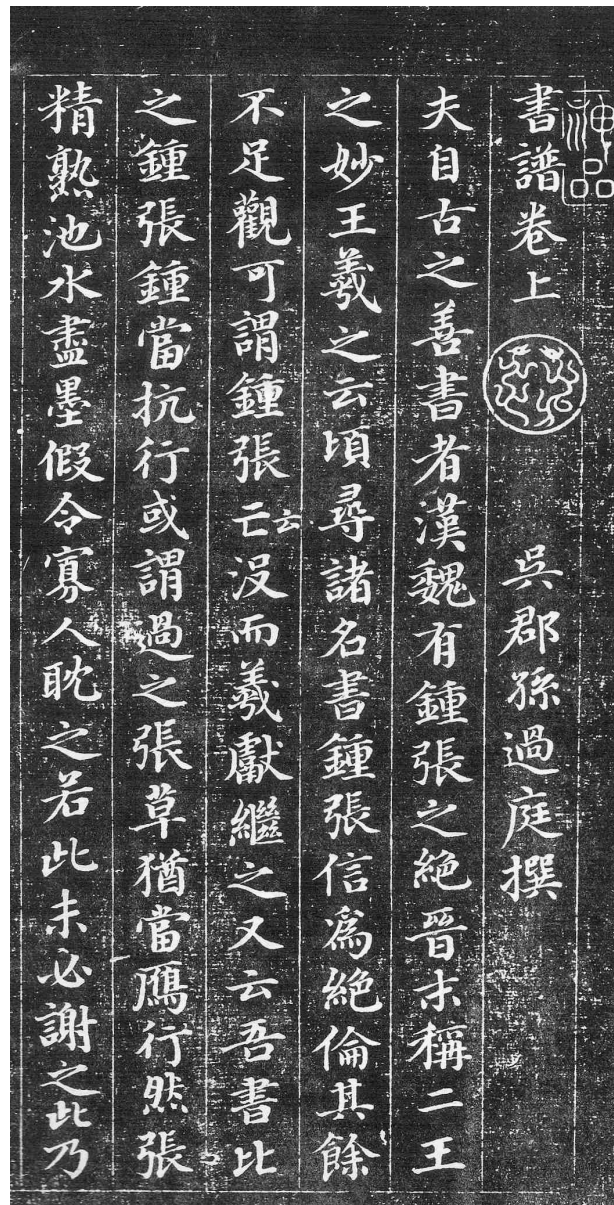 神品
書譜卷上 吳郡孫過庭撰
夫自古之善書者漢魏有鍾張之絶晉末稱二王
之妙王羲之云頃尋諸名書鍾張信為絶倫其餘
不足觀可謂鍾張亡云沒而羲獻繼之又云吾書比
之鍾張鍾當抗行或謂過之張草猶當鴈行然張
精熟池水盡墨假令寡人耽之若此未必謝之此乃